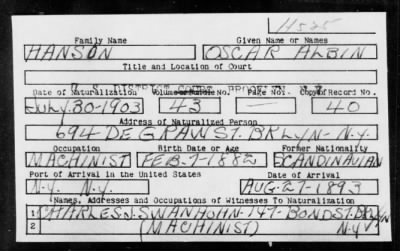 11525
Family Name Given Name or Names
HANSON OSCAR ALBIN
Title and Location of Court
U. S. DISTRICT COURT
Date of Naturalization Volume or Bundle No. Page No. Copy of Record No.
JULY-30-1903 43 — 40
Address of Naturalized Person
694 DEGRAW ST. BRLYN-N.Y.
Occupation Birth Date or Age Former Nationality
MACHINIST FEB-7-1882 SCANDINAVIAN
Port of Arrival in the United States Date of Arrival
N.Y. N.Y. AUG-27-1893
Names, Addresses and Occupations of Witnesses To Naturalization
1 CHARLES J. SWANHOHN-747-BOND ST. BRLYN
2 (MACHINIST) N.Y.